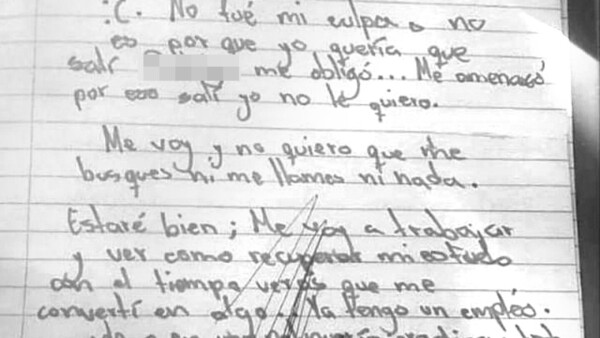 :C. No fué mi culpa, no
es por que yo quería que
salí me obligó... Me amenazó
por eso salí yo no le quiero.
Me voy y no quiero que me
busques ni me llames ni nada.
Estaré bien; Me voy a trabajar
y ver como recuperar mi estudo
con el tiempo verás que me
convertí en algo... Ya tengo un empléo.